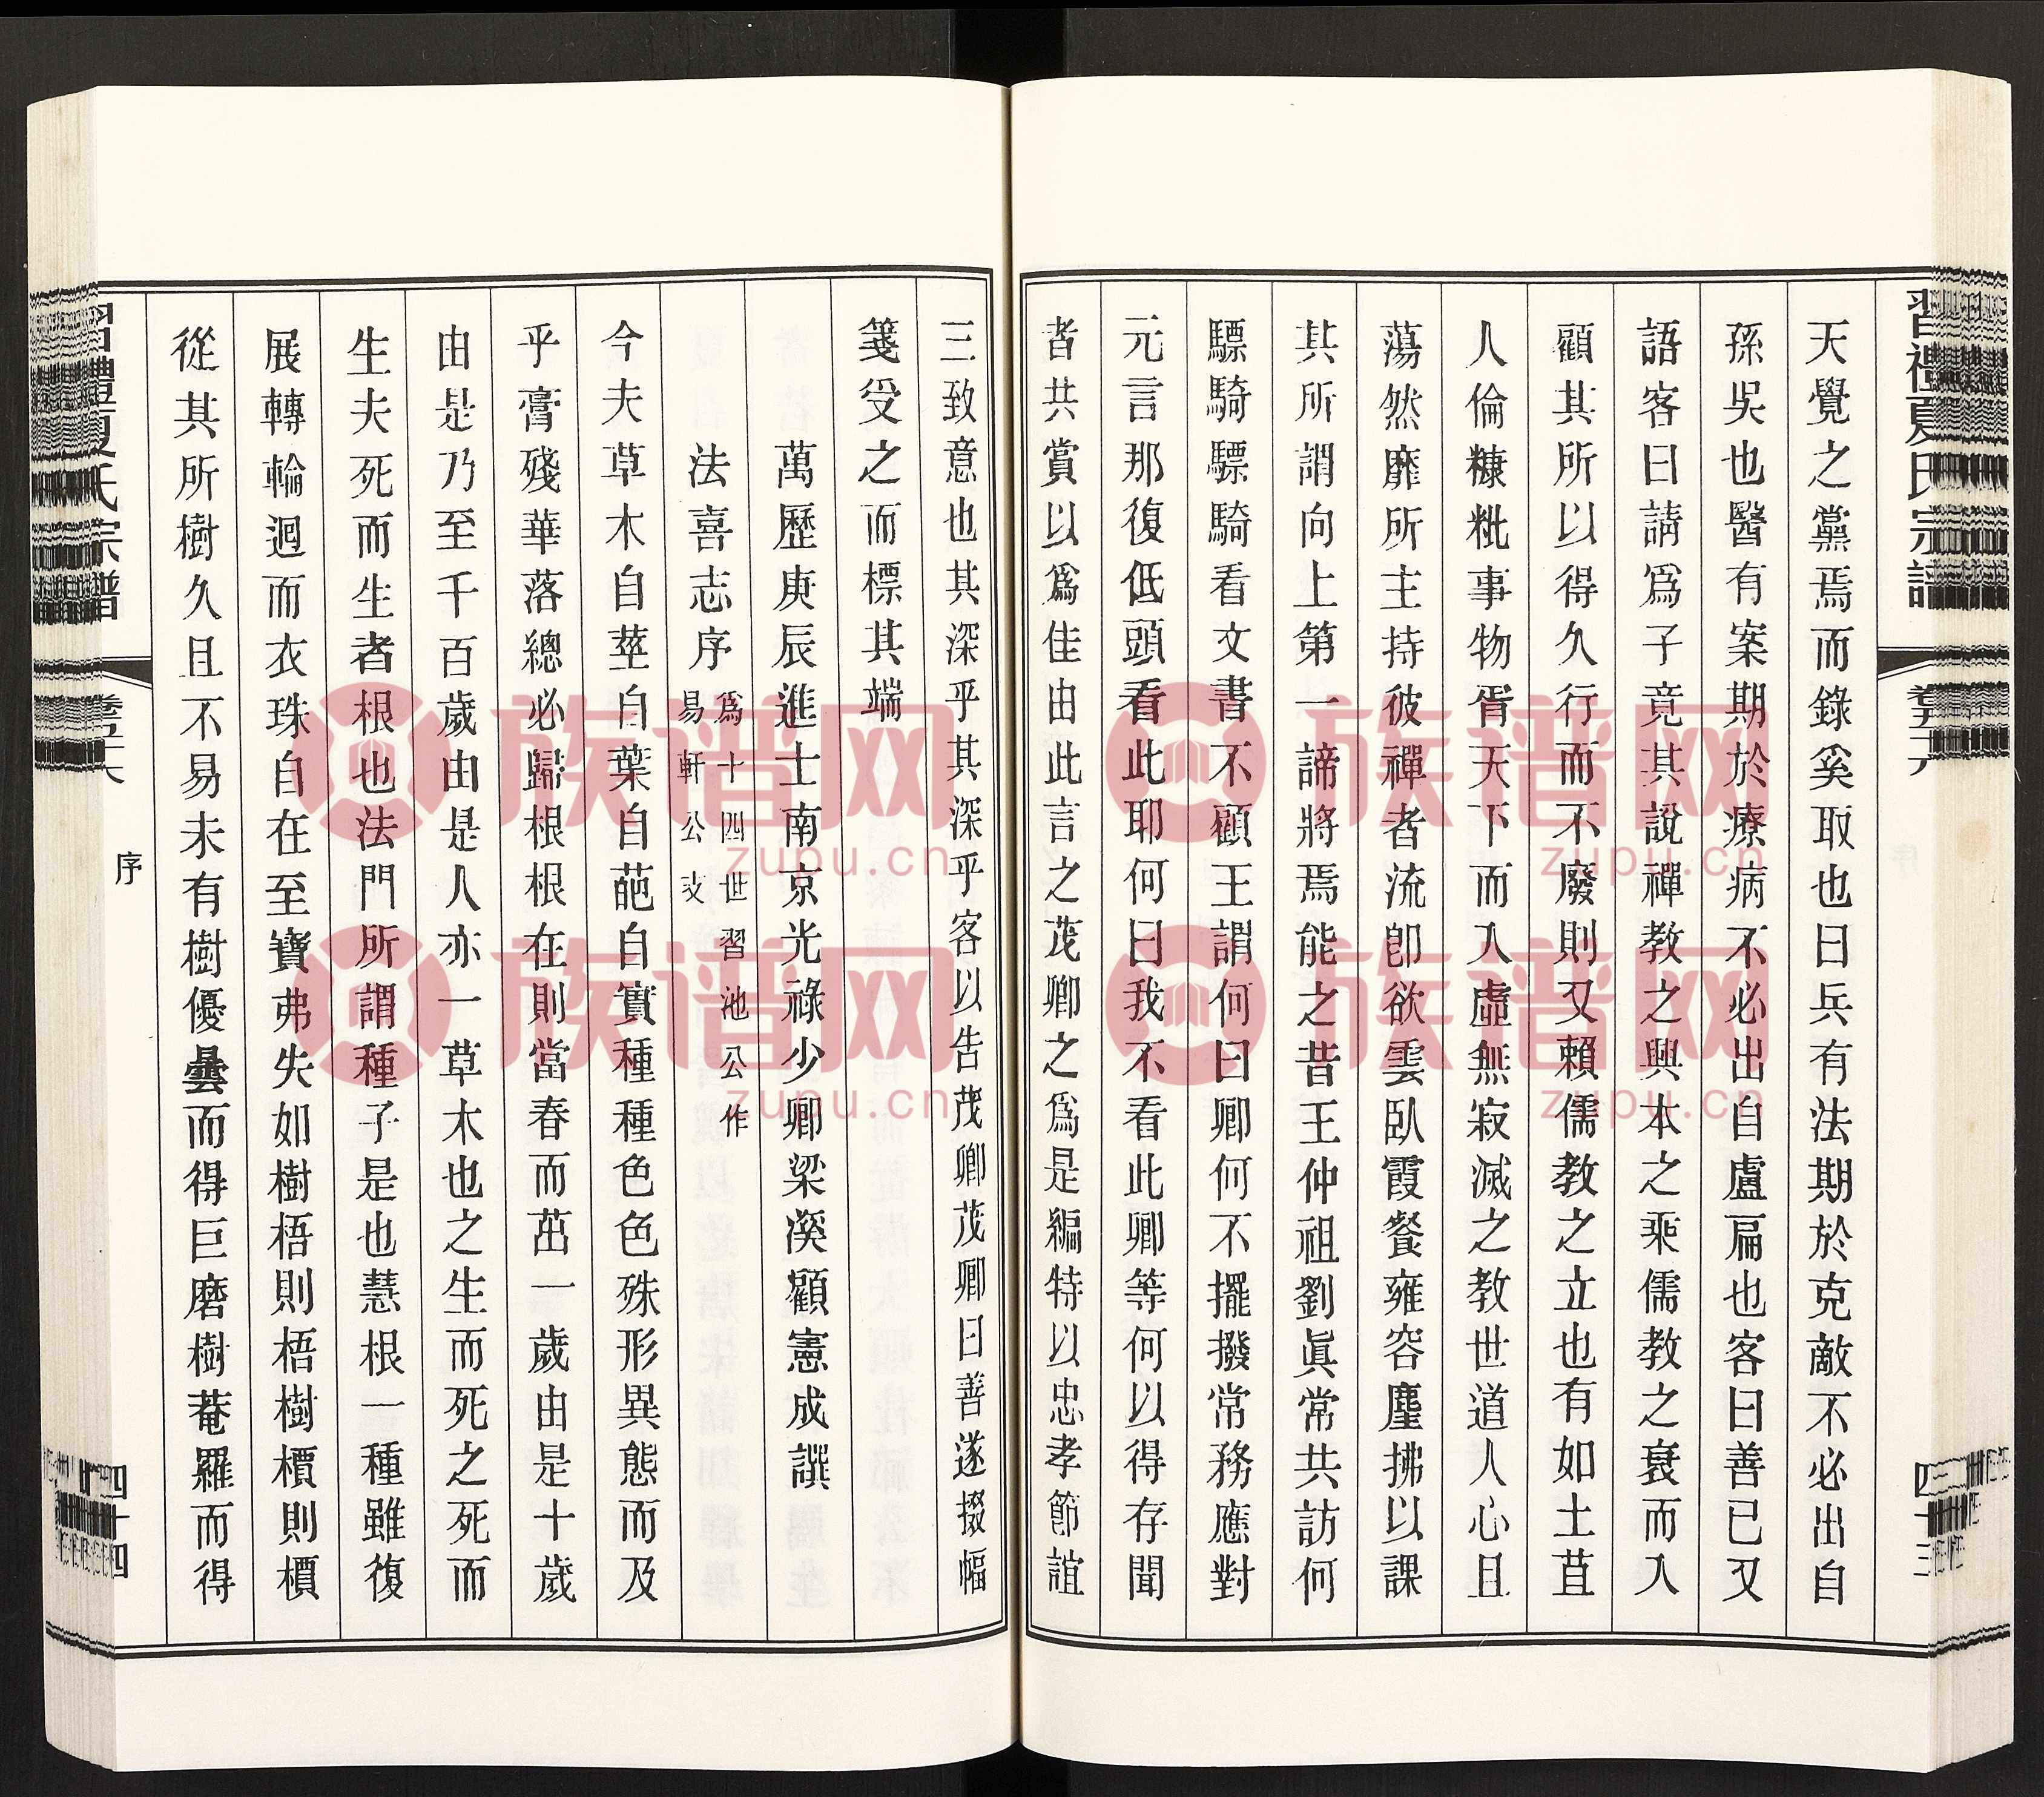 習禮夏氏宗譜
卷五十六
天覺之黨焉而錄奚取也曰兵有法期於克敵不必出自
孫吳也醫有案期於療病不必出自盧扁也客曰善已又
語客曰請爲子竟其說禪教之興本之乘儒教之衰而入
顧其所以得久行而不廢則又賴儒教之立也有如土苴
人倫糠粃事物胥天下而入虛無寂滅之教世道人心且
蕩然靡所主持彼禪者流卽欲雲臥霞餐雍容麈拂以課
其所謂向上第一諦將焉能之昔王仲祖劉眞常共訪何
驃騎驃騎看文書不顧王謂何曰卿何不擺撥常務應對
元言那復低頭看此耶何曰我不看此卿等何以得存聞
者共賞以爲佳由此言之茂卿之爲是編特以忠孝節誼
三致意也其深乎其深乎客以告茂卿茂卿曰善遂掇幅
箋受之而標其端
萬歷庚辰進士南京光祿少卿梁溪顧憲成譔
法喜志序
爲十四世習池公作
易軒公支
今夫草木自莖自葉自葩自實種種色色殊形異態而及
乎膏殘華落總必歸根根在則當春而茁一歲由是十歲
由是乃至千百歲由是人亦一草木也之生而死之死而
生夫死而生者根也法門所謂種子是也慧根一種雖復
展轉輪迴而衣珠自在至寶弗失如樹梧則梧樹檟則檟
從其所樹久且不易未有樹優曇而得巨磨樹菴羅而得
習禮夏氏宗譜
序
四十四
族谱网
zupu.cn
族谱网
zupu.cn
族谱网
zupu.cn
族谱网
zupu.cn